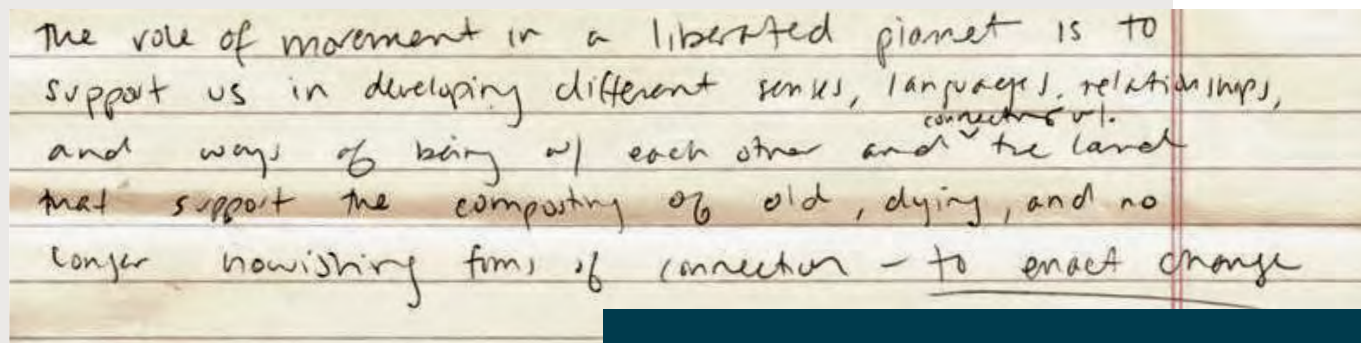 The role of movement in a liberated planet is to
support us in developing different senses, languages, relationships,
connecting w/
and ways of being w/ each other and ^ the land
that support the composting of old, dying, and no
longer nourishing forms of connection – to enact change